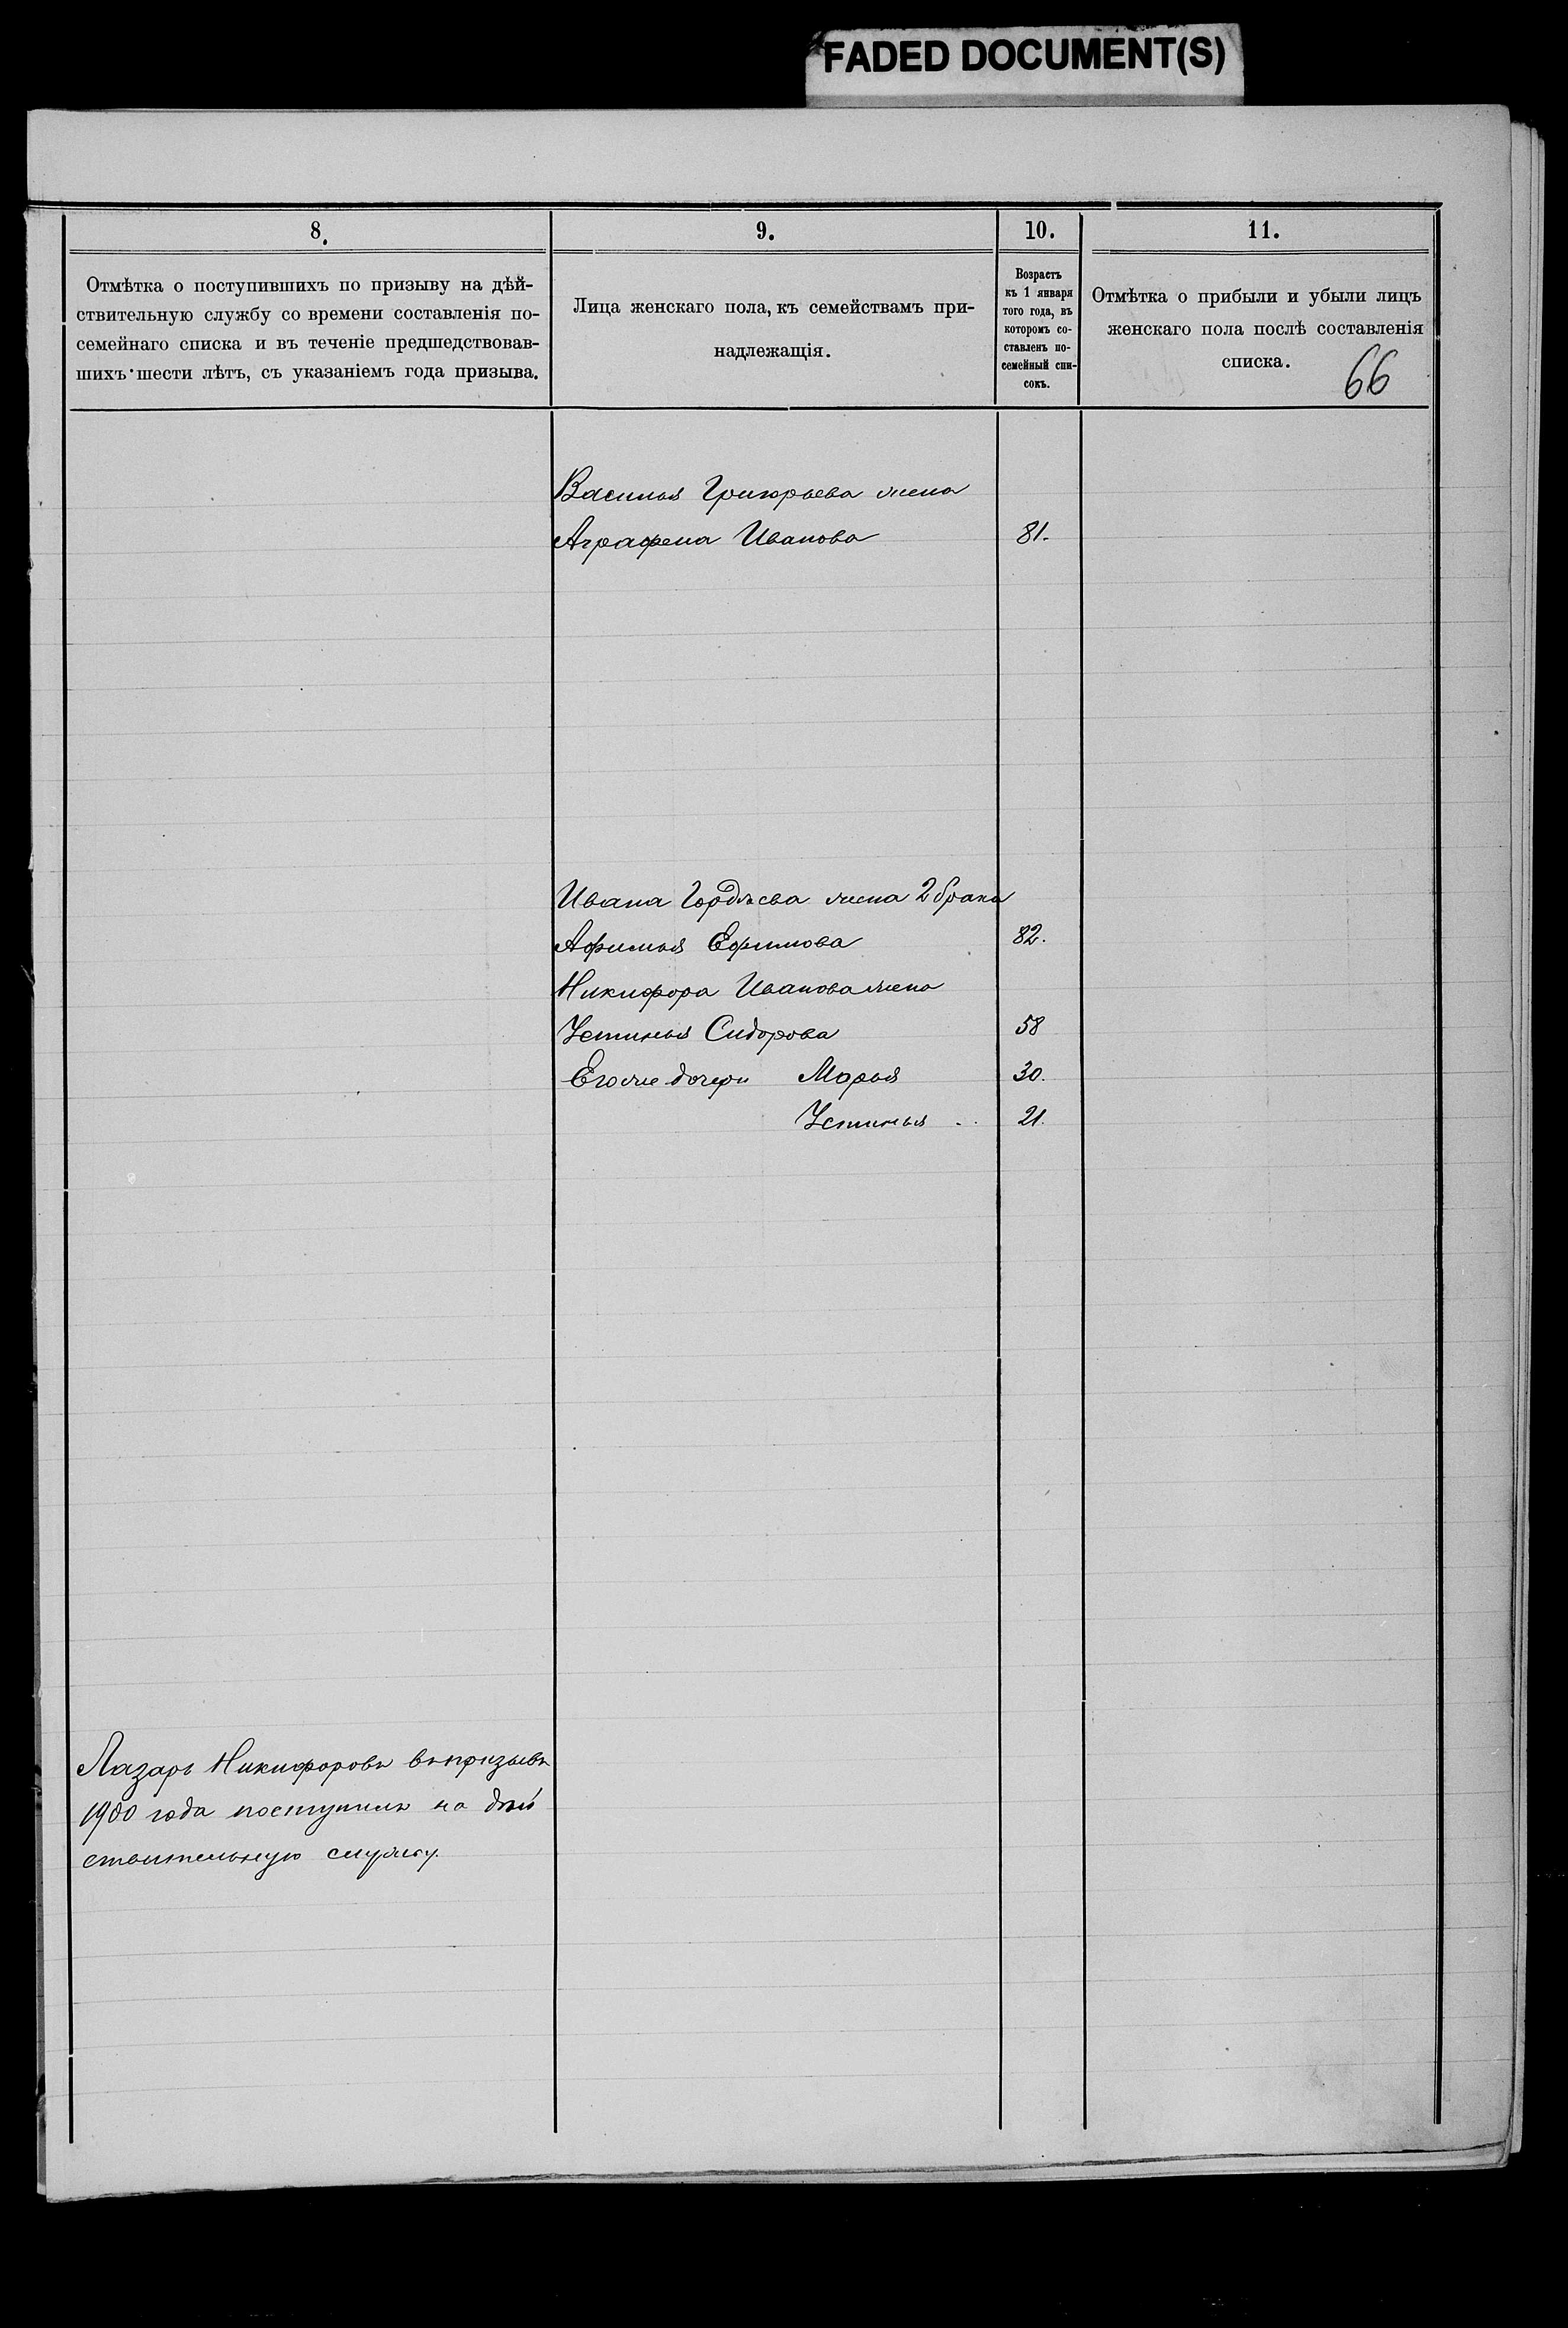 FADED DOCUMENT(S)
8.
Отмѣтка о поступившихъ по призыву на дѣй-
ствительную службу со времени составленія по-
семейнаго списка и въ теченіе предшедствовав-
шихъ шести лѣтъ, съ указаніемъ года призыва.
9.
Лица женскаго пола, къ семействамъ при-
надлежащія.
10.
Возрастъ
къ 1 января
того года, въ
которомъ со-
ставленъ по-
семейный спи-
сокъ.
11.
Отмѣтка о прибыли и убыли лицъ
женскаго пола послѣ составленія
списка.
66
Василья Григорьева жена
Аграфена Иванова 81.
Ивана Гордѣева жена 2 брака
Афимья Ефимова 82.
Никифора Иванова жена
Устинья Сидорова 58
Его же дочери Марья 30.
Устинья .. 21.
Лазарь Никифоровъ въ призывъ
1900 года поступилъ на дѣй
ствительную службу.